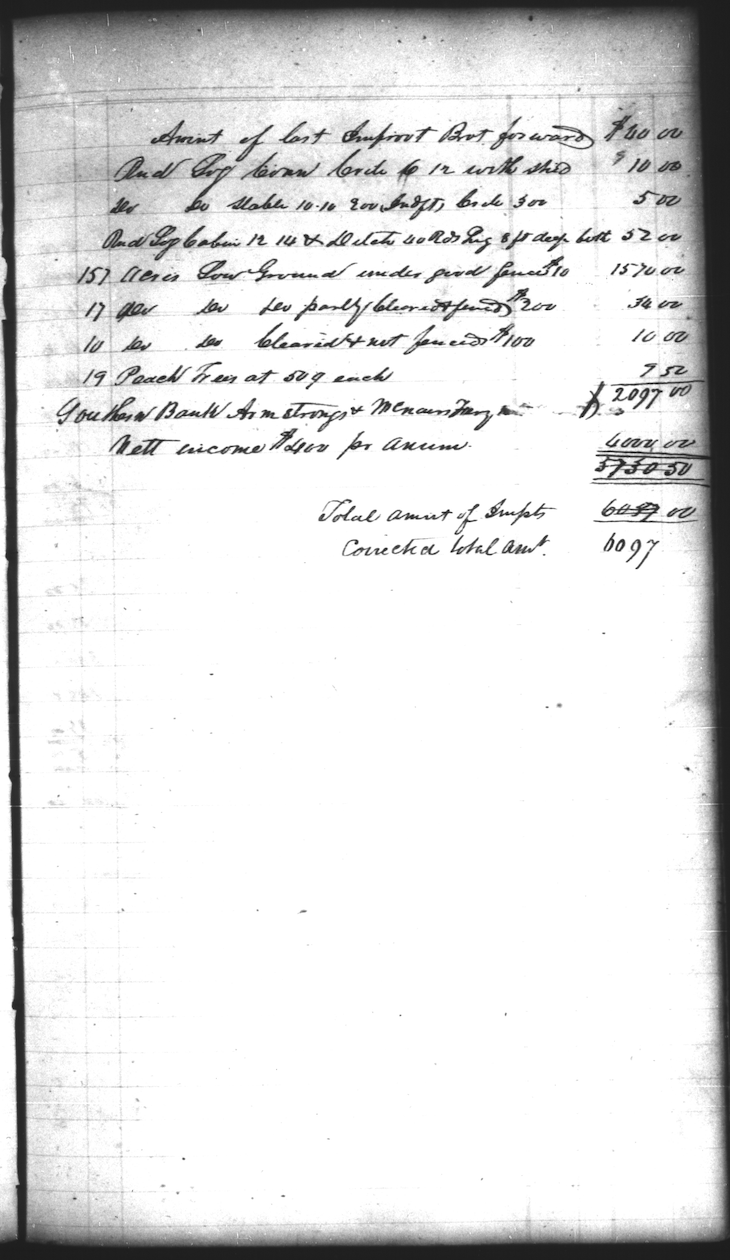 Amnt of last Improvt Brot forward $40 00
Rnd Log Crib 6 12 with shed $10 00
do do Stable 10.10 200 Indft, Crib 300 5 00
Rnd Log Cabin 12 14 & Ditch 40 Rds Lng 3 ft deep both 52 00
157 Acres Low Ground under good fence $10 1570 00
17 do do do partly Cleared & fenced $200 34 00
10 do do Cleared & not fenced $100 10 00
19 Peach Trees at 50¢ each 9 50
Southern Bank Armstrongs & McNairs Fery $2097 00
Nett income $400 pr anum 4000 00
5730 50
Total amnt of Impts 6097 00
Corrected total amt. 6097